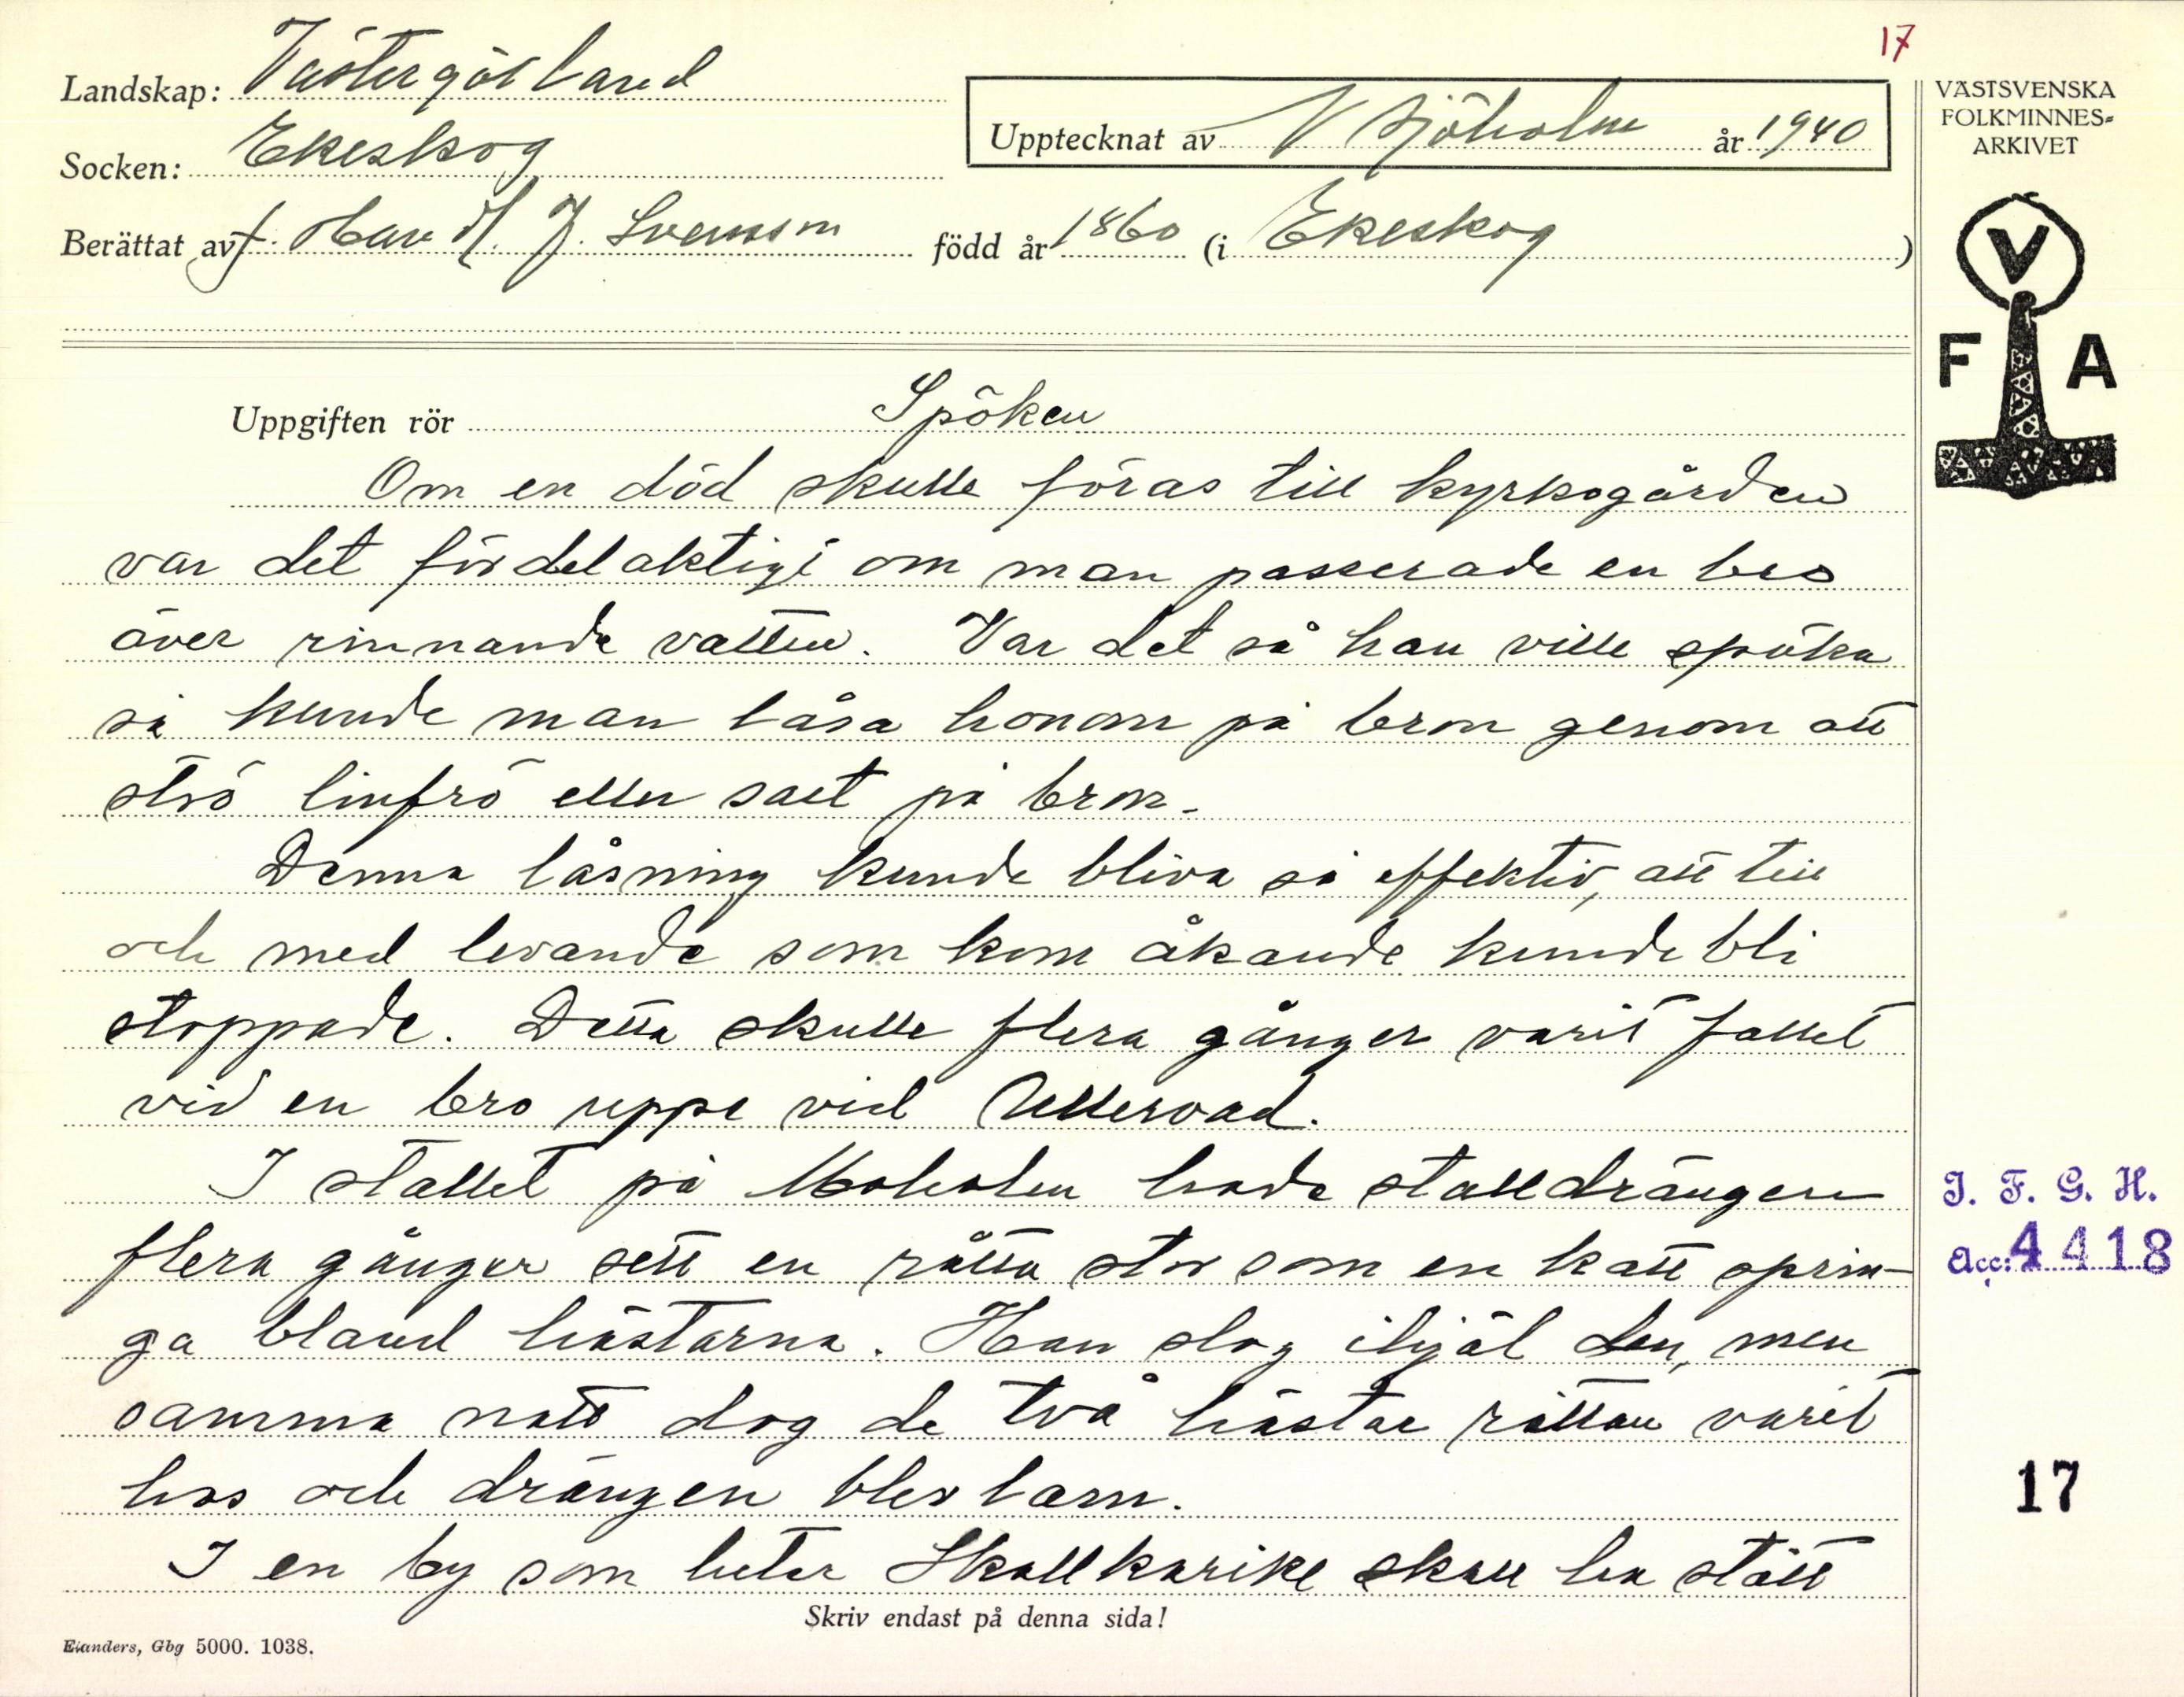 17
Landskap: Västergötland
Socken: Ekeskog
Upptecknat av V Sjöholm år 1940
Berättat av f. Hem. äg. J. Svensson född år 1860 (i Ekeskog)
VÄSTSVENSKA
FOLKMINNES-
ARKIVET
V
F A
Uppgiften rör Spöken
Om en död skulle föras till kyrkogården
var det fördelaktigt om man passerade en bro
över rinnande vatten. Var det så han ville spöka
så kunde man låsa honom på bron genom att
strö linfrö eller salt på bron.
Denna låsning kunde bliva så effektiv, att till
och med levande som kom åkande kunde bli
stoppade. Detta skulle flera gånger varit fallet
vid en bro uppe vid Ullervad.
I stallet på Moholm hade stalldrängen
flera gånger sett en råtta stor som en katt sprin-
ga bland hästarna. Han slog ihjäl den, men
samma natt dog de två hästar råttan varit
hos och drängen blev lam.
I en by som heter Skallkarike skall ha stått
I. F. G. H.
Acc: 4418
17
Skriv endast på denna sida!
Elanders, Gbg 5000. 1038.